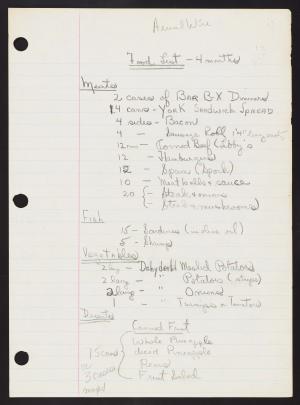 Food List - 4 months
Meats
2 cases of BAR B-X Dinners
24 cans - YORK SANDWICH SPREAD
4 sides - Bacon
4 - Sausage Roll
12 - Corned Beef (Libby's
12 - Hamburgers
12 - Spam (Spork)
10 - Meatballs & sauce
20 - Steak & onions
- Steak & mushrooms
Fish
15 - Sardines (in olive oil)
5 - Shrimp
Vegetables
2 lang - Dehydrated Mashed Potatoes
2 lang - " Potatoes (strips)
2 lang - " Onions
1 - " Turnips or Tomatoes
Deserts
Canned Fruit
Whole Pineapple
15 cans diced Pineapple
or Pears
3 cases Fruit Salad
mixed